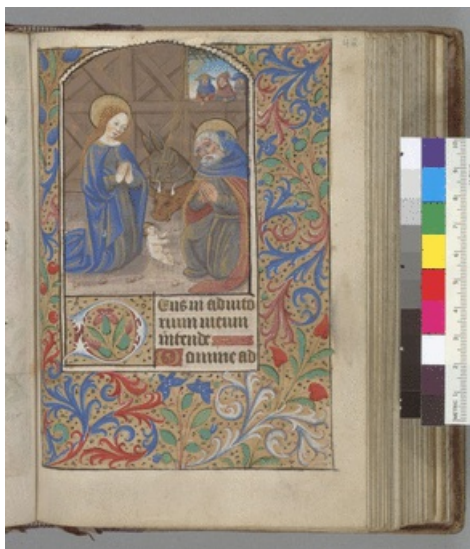 Eus in adiuto
rium meum
intende
Domine ad